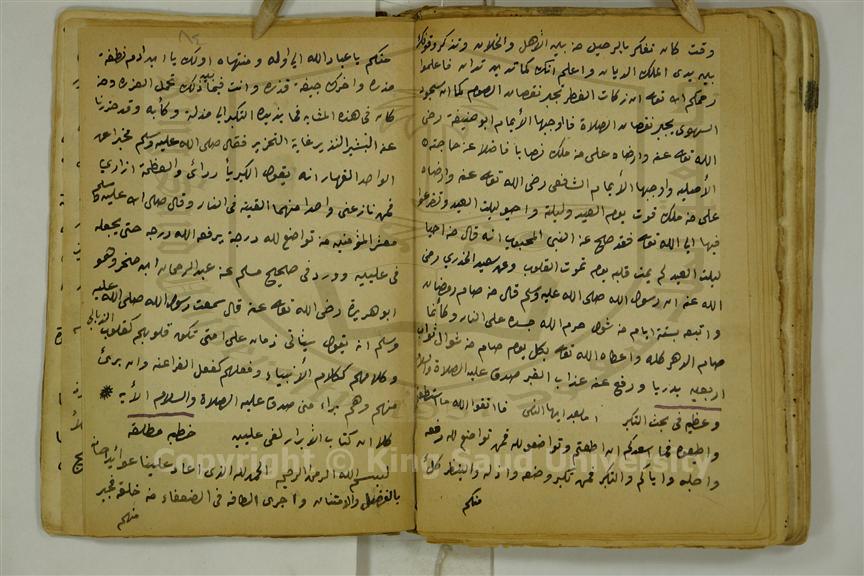 وقت كان تفكر بالرحيل من بين الأهل والخلان وتذكر وقوفك
بين يدى الملك الديان واعلم انك كما تدين تدان فاعلموا
رحمكم الله تعالى ان زكات الفطر تجبر نقصان الصوم كما ان سجود
السهو يجبر نقصان الصلاة فاوجبها الأمام ابو حنيفة رضى
الله تعالى عنه وارضاه على من ملك نصابا فاضلا عن حاجته
الأصليه واوجبها الأمام الشافعى رضى الله تعالى عنه وارضاه
على من ملك قوت يوم العيد وليلة واحيو ليلت العيد وتضرعوا
فيها الى الله تعالى فقد صح عن النبى المحبوب انه قال من احيا
ليلت العيد لم يمت قلبه يوم تموت القلوب وعن سعيد الخدرى رضى
الله عنه ان رسول الله صلى الله عليه وسلم قال من صام رمضان
واتبعه بستة ايام من شوال حرم الله جسده على النار وكأنما
صام الدهر كله واعطاه الله تعالى بكل يوم صام من شوال ثواب
اربعين بدريا ورفع عنه عذاب القبر صدق عليه الصلاة والسلام
وعظيم فى بحث التكبر اما بعد ايها الناس فاتقوا الله ما استطعتم
واطيعوه فما اسعدكم ان اطعتم وتواضعو لله فمن تواضع لله رفعه
واجله واياكم والتكبر فمن تكبر وضعه واذله والتبط كل
منكم
منكم يا عباد الله الى اوله ومنتهاه اولك يا ابن ادم نطفة
مذره واخرك جيفة قذره وانت فيما بين ذلك تحمل العذره ومن
كان فى هذه المثابه فما يزيده التكبر الى مذلة وكأبه وقد حذرنا
عنه البشير النذير غاية التحذير فقال صلى الله عليه وسلم مخبرا عن
الواحد القهار انه يقول الكبرياء ردائى والعظمة ازارى
فمن نازعنى واحدا منهما القيته فى النار وقال صلى الله عليه وسلم
معشر المؤمنين من تواضع لله درجة يرفعه الله درجة حتى يجعله
فى عليين وورد فى صحيح مسلم عن عبد الرحمان ابن صخر وهو
ابو هريرة رضى الله تعالى عنه قال سمعت رسول الله صلى الله عليه
وسلم انه يقول سيأتى زمان على امتى تكون قلوبهم كقلوب الذياب
وكلامهم ككلام الأنبياء وفعلهم كفعل الفراعنه وانى برئ
منهم وهم براء منى صدق عليه الصلاة والسلام الأيه *
كلا ان كتاب الأبرار لفى عليين خطبه مطلقة
بسم الله الرحمن الرحيم الحمد لله الذى اعاد علينا عوائد احسانه
بالفضل والامتنان واجرى الطافه فى الضعفاء من خلقه فجبر
منهم
Copyright © King Saud University